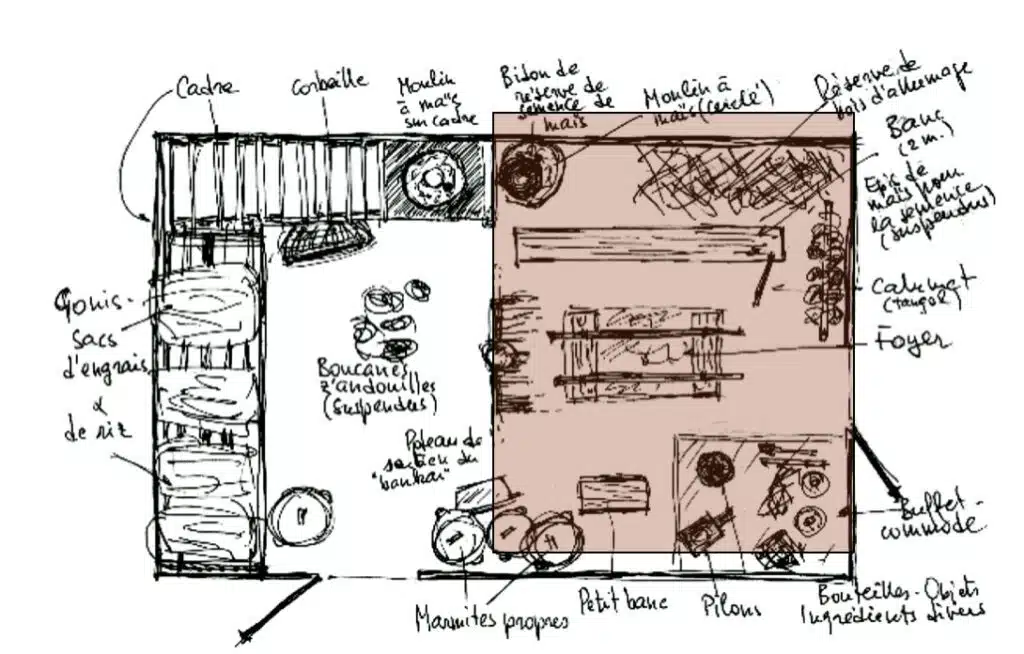 Cadre
Corbeille
Moulin
à maïs
sur cadre
Bidon de
réserve de
semence de
maïs
Moulin à
maïs (cerclé)
Réserve de
bois d'allumage
Banc
(2 m.)
Epis de
maïs pour
la semence
(suspendus)
Calumet
(tangol)
Foyer
Gonis-
sacs
d'engrais
&
de riz
Boucanes
z'andouilles
(suspendus)
Poteau de
soutien du
Buffet-
commode
Marmites propres
Petit banc
Pilons
Bouteilles-Objets
Ingrédients divers